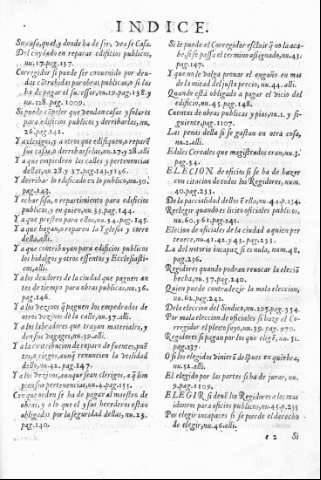 INDICE.
Su casa, qual, y donde ha de ser, vease Casa.
Del cuydado en reparar edificios publicos,
nu.17.pag.137.
Corregidor si puede ser conuenido por deu-
das contraidas por obras publicas, o si les
ha de pagar el sucessor, nu.19.pag.138. y
nu.128. pag.1009.
Si puede que vendan casas y solares
para edificios publicos y derribarlas, nu.
26.pag.142.
Y a clerigos, y a otros que edifiquen, o repare
sus casas, o derribarlas, nu.27.y 28.alli.
Y a que empiedren las calles y pertenencias
dellas, nu.28. y 37. pag.143. y 146.
Y derribar lo edificado en lo publico, nu.30.
pag.143.
Y echar sisa, o repartimiento para edificios
publicos, y en quien, nu.33.pag.144.
Y a que presten para ellos, nu.34.pag.145.
Y a que hagan, o reparen la Yglesia y torre
della, alli.
Y a que contribuyan para edificios publicos
los hidalgos y otros essentos y Ecclesiasti-
cos, alli.
Y a los deudores de la ciudad que paguen an
tes de tiempo para obras publicas, nu.36.
pag.146.
Y a los vezinos q̃ paguen los empedrados de
otros vezinos de la calle, nu.37.alli.
Y a los labradores que trayan materiales, y
den sus bagages, nu.38.alli.
Y a la contribucion de reparo de fuentes, puẽ
tes, a clerigos, aunq̃ renuncien la vtilidad
dello, nu.42. pag.147.
Y a los vezinos, aunque sean clerigos, a q̃ lim
pien sus pertenencias, nu.44.pag.155.
Con que orden se ha de pagar al maestro de
obras, y a lo que el y sus herederos estan
obligados por la seguridad dellas, nu.23.
pag.140.
Si le puede el Corregidor escluir q̃ no la aca-
be, si se passa el termino assignado, nu.43.
pag.147.
Y que no le valga prouar el engaño en mas
de la mitad del justo precio, nu.44.alli.
Quando està obligado a pagar el vicio del
edificio, nu.45.pag.148.
Cuentas de obras publicas y pias, nu.1. y si-
guiente, pag.1107.
Las penas della si se gastan en otra cosa,
nu.2.alli.
Ediles Corrales que magistrados eran, nu.3.
pag.34.
ELECION de oficios si se ha de hazer
con citacion de todos los Regidores, num.
40.pag.233.
De la parcialidad dellos en ella, nu.44.p.234.
Reelegir quando es licito oficiales publicos,
nu.60.y 61.pag.141.
Elecion de oficiales de la ciudad a quien per
tenece, nu.41.42.y 43. pag.233.
La del notario incapaz, si es nula, num.48.
pag.236.
Regidores quando podran reuocar la elecio
hecha, nu.57.pag.240.
Quien puede contradezir la mala eleccion,
nu.62.pag.242.
De la eleccion del Sindico, nu.207.pag.354.
Por mala eleccion de oficiales si haze el Co-
rregidor el pleito suyo, nu.39. pag. 970.
Regidores si pagan por los que eligẽ, nu.51.
pag.137.
O si los elegidos vinierẽ despues en quiebra,
nu.52.alli.
El elegido por las partes si ha de jurar, nu.
9.pag.1109.
ELEGIR si deuẽ los Regidores a los mas
idoneos para oficios publicos, nu.45.p.235
Por elegir incapaces si se pierde el derecho
de elegir, nu.46.alli.
e 2 Si